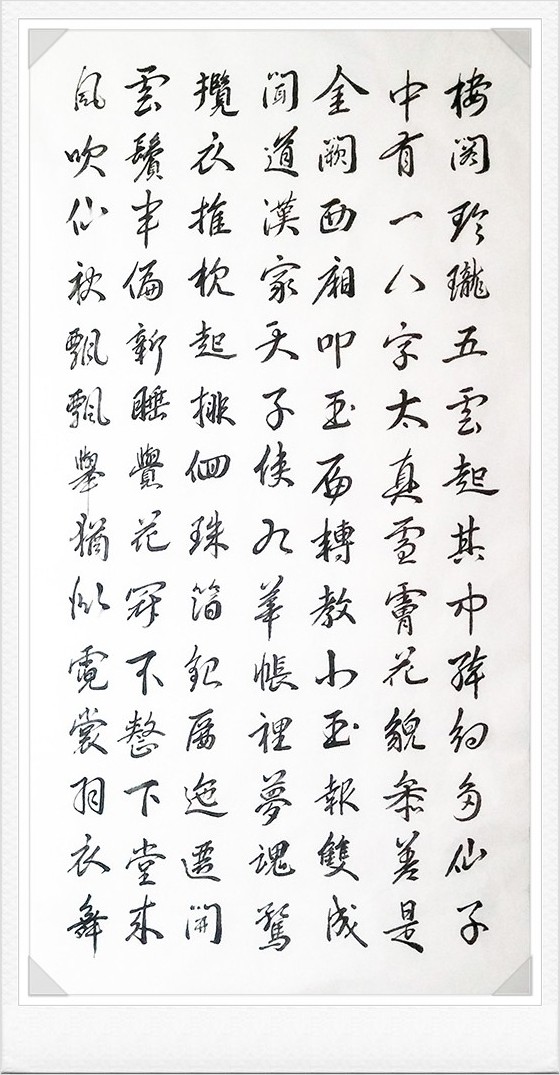 樓閣玲瓏五雲起其中綽約多仙子
中有一人字太真雪膚花貌參差是
金闕西廂叩玉扃轉教小玉報雙成
聞道漢家天子使九華帳裡夢魂驚
攬衣推枕起排佪珠箔銀屏迤邐開
雲鬢半偏新睡覺花冠不整下堂來
風吹仙袂飄飄舉猶似霓裳羽衣舞